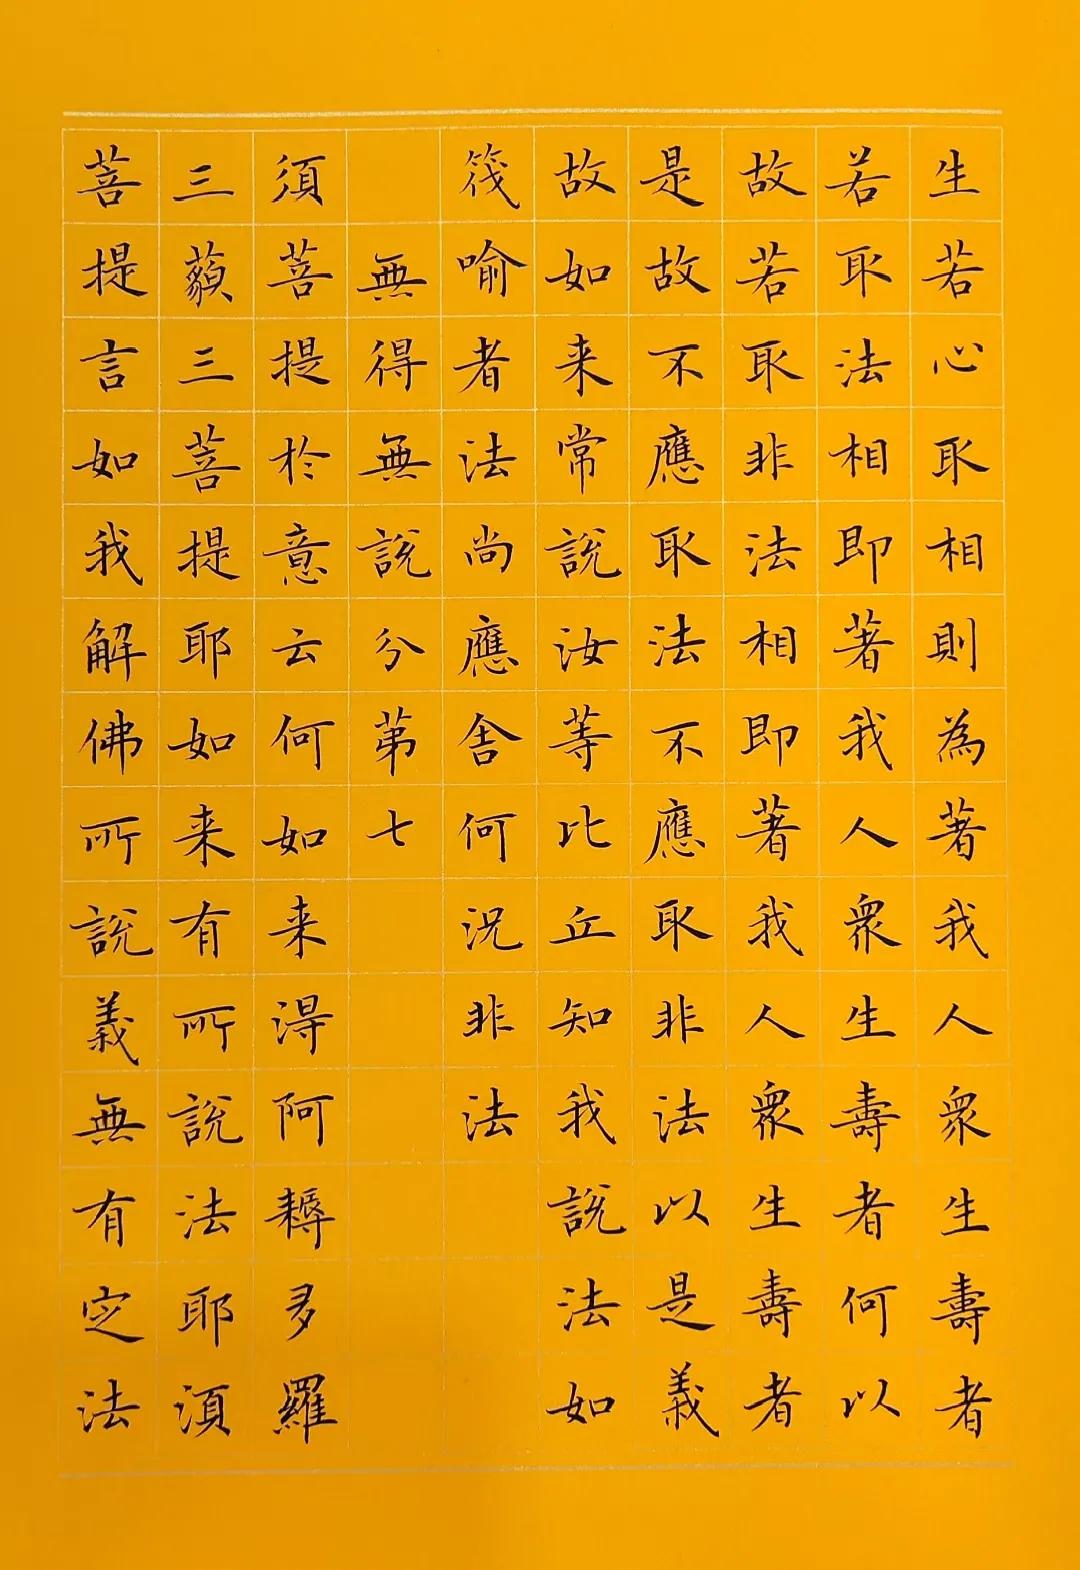 生若心取相則為著我人衆生壽者
若取法相即著我人衆生壽者何以
故若取非法相即著我人衆生壽者
是故不應取法不應取非法以是義
故如来常説汝等比丘知我說法如
筏喻者法尚應舍何況非法
無得無說分第七
須菩提於意云何如来得阿耨多羅
三藐三菩提耶如来有所說法耶須
菩提言如我解佛所說義無有定法